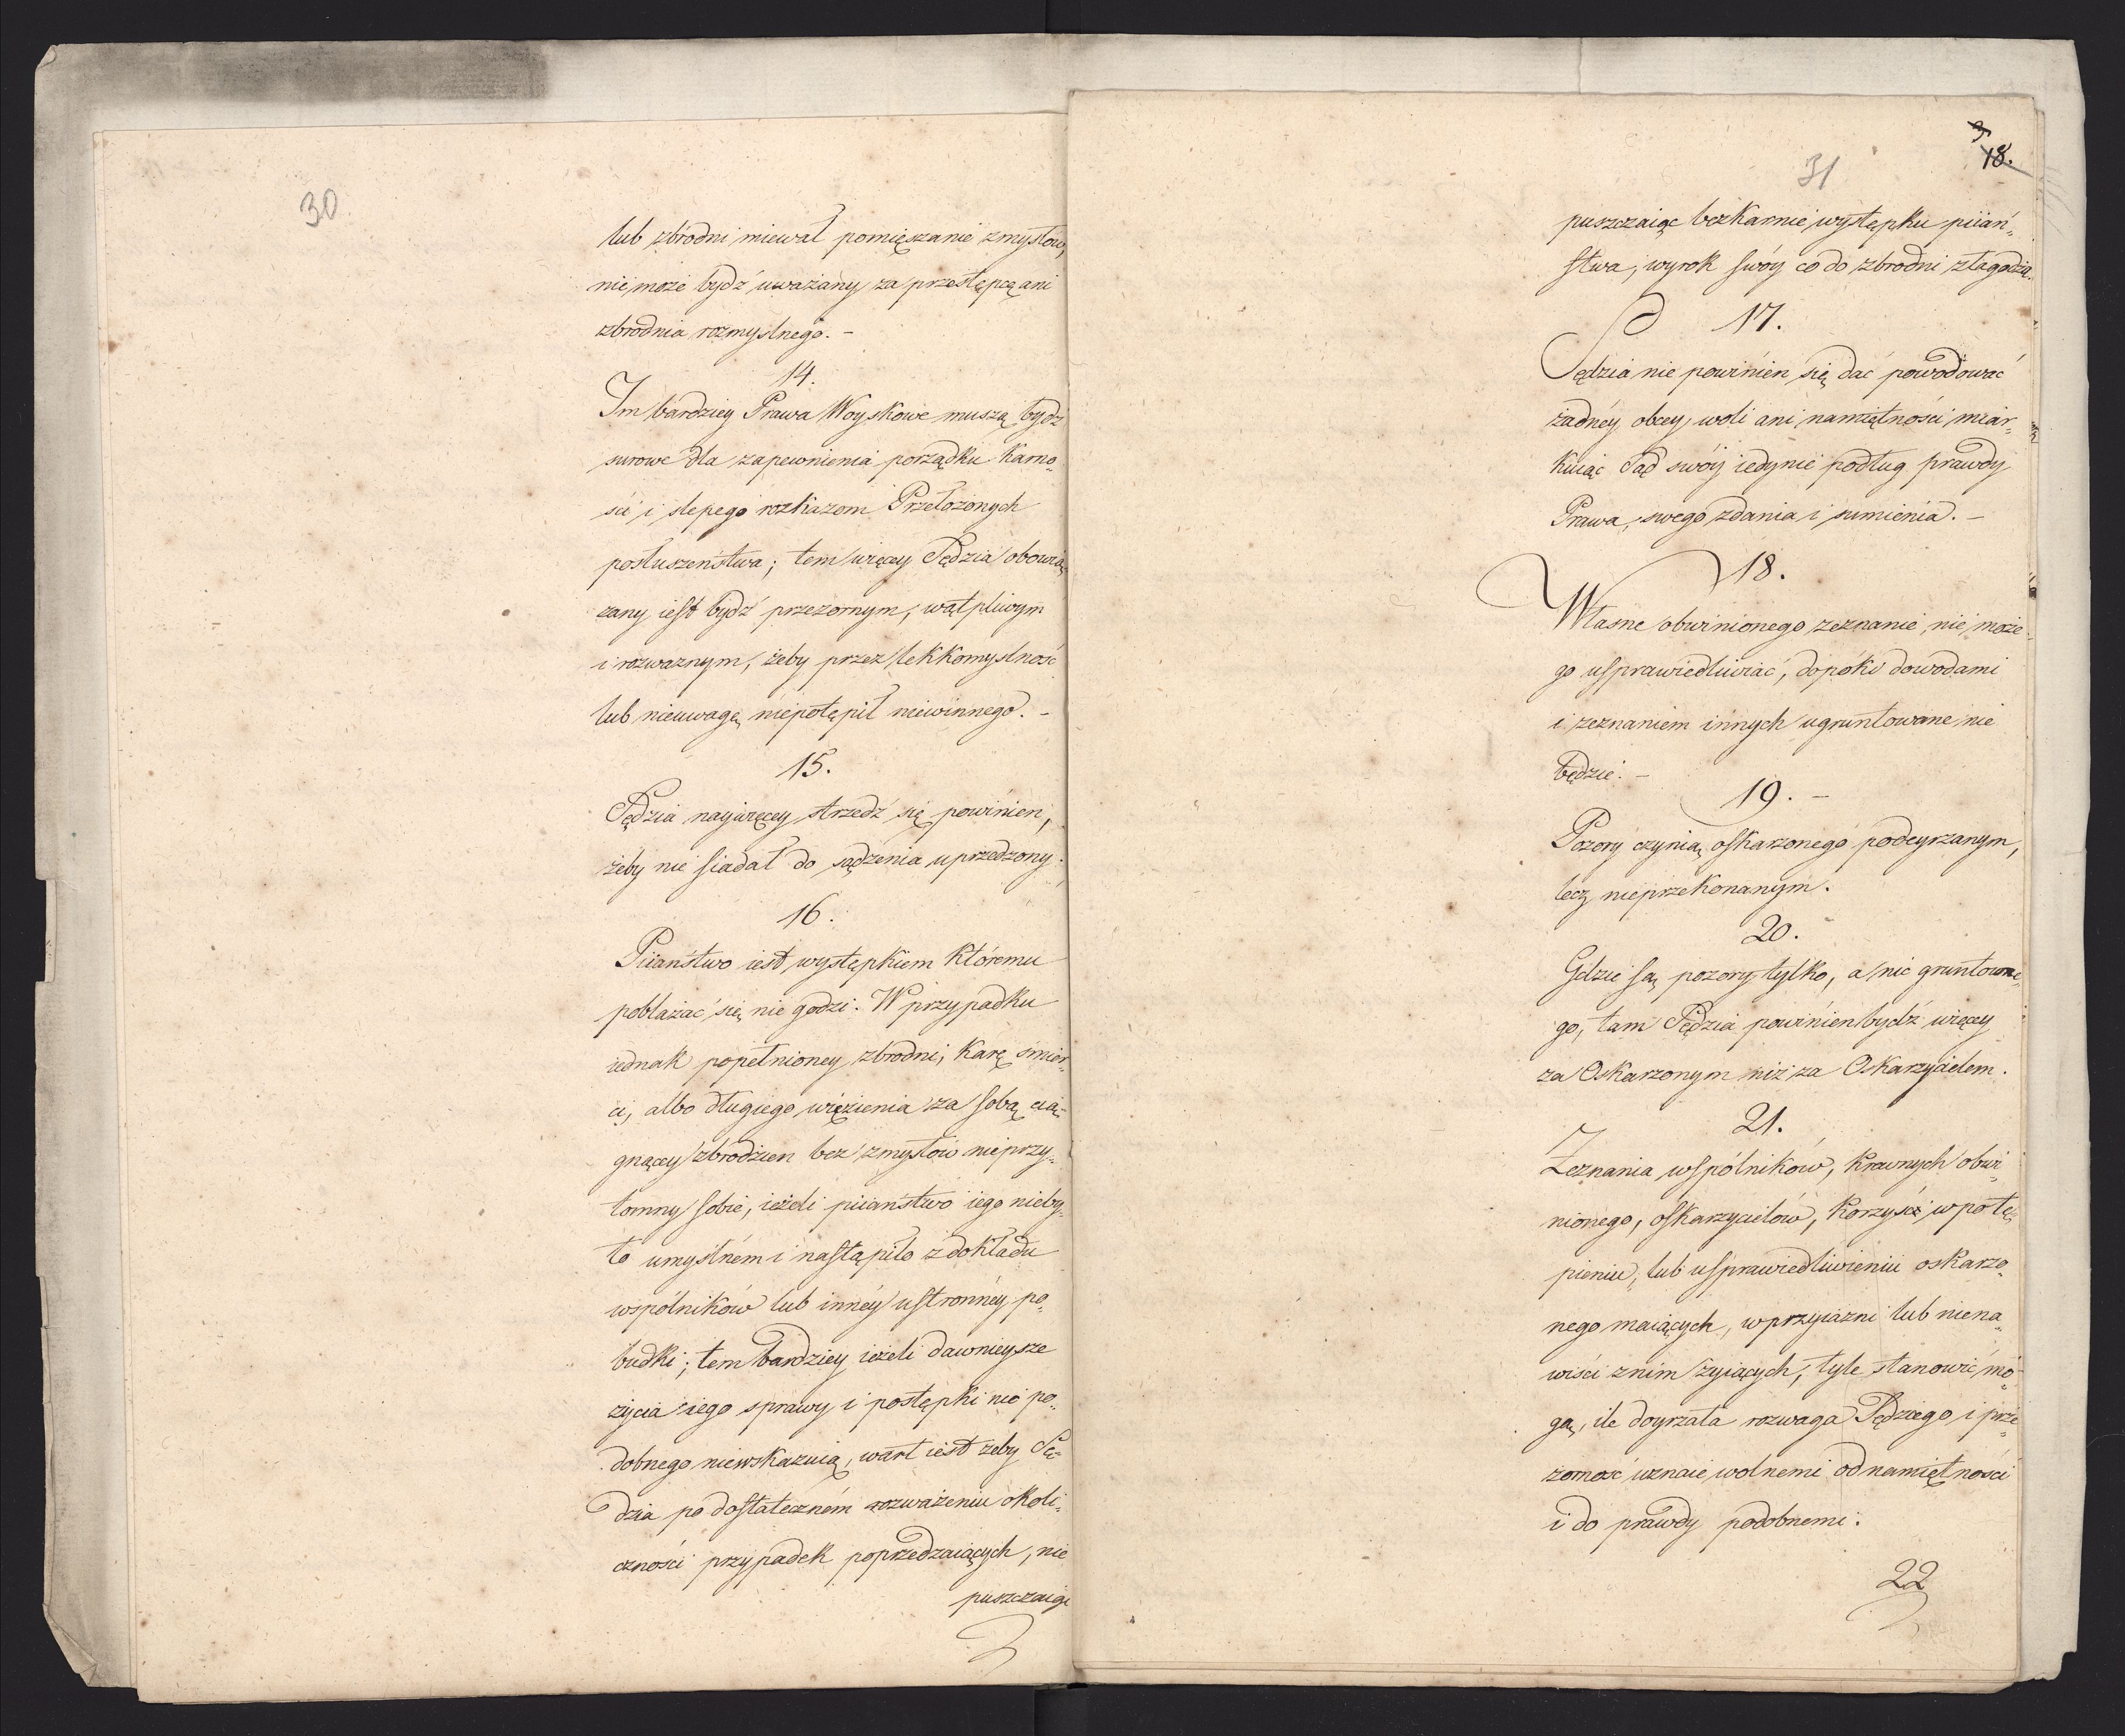 30
lub zbrodni miewał pomięszanie zmysłów,
nie może bydź uważany za przestępcę ani
zbrodnia rozmyslnego. –
14.
Im bardziey Prawa Woyskowe muszą bydź
surowe dla zapewnienia porządku karno„
ści i slepego rozkazom Przełożonych
posłuszeństwa; tem więcey Sędzia obowią„
zany iest bydź przezornym, wątpliwym
i rozwaznym, żeby przez lekkomyslność
lub nieuwagę niepotępił niewinnego. –
15.
Sędzia naywięcey strzedź się powinien,
żeby nie siadał do sądzenia uprzedzony.
16.
Piiaństwo iest występkiem któremu
pobłażać się nie godzi. W przypadku
iednak popełnioney zbrodni, karę śmier„
ci, albo długiego więzienia za sobą cią„
gnącey zbrodzien bez zmysłów nieprzy„
tomny sobie, ieżeli piiaństwo iego nieby„
ło umyślném i nastąpiło z dokładu
wspólników lub inney ustronnéy po„
budki; tem bardziey ieżeli dawnieysze
życia iego sprawy i postępki nic po„
dobnego niewskazuią, wart iest żeby Sę„
dzia po dostateczném rozważeniu okoli„
czności przypadek poprzedzaiących, nie
puszczaiąc
18.
31
puszczaiąc bezkarnie występku piiań„
stwa, wyrok swóy co do zbrodni złagodził.
17.
Sędzia nie powinien się dać powodować
żadnéy obcey woli ani namiętności miar„
kuiąc Sąd swóy iedynie podług prawdy
Prawa, swego zdania i sumienia. –
18.
Własne obwinionego zeznanie, nie może
go usprawiedliwiać, dopóki dowodami
i zeznaniem innych ugruntowane nie
będzie. –
19. –
Pozory czynią oskarzonego podeyrzanym,
lecz nieprzekonanym.
20.
Gdzie są pozory tylko, a nic gruntowne„
go, tam Sędzia powinien bydź więcey
za Oskarzonym niż za Oskarzycielem.
21.
Zeznania wspólników, krewnych obwi„
nionego, oskarzycielów, korzyść w potę„
pieniu, lub usprawiedliwieniu oskarzo„
nego maiących, w przyiazni lub niena„
wiści z nim żyiących, tyle stanowić mo„
gą, ile doyrzała rozwaga Sędziego i prze„
zorność uznaie wolnemi od namiętności
i do prawdy podobnemi.
22